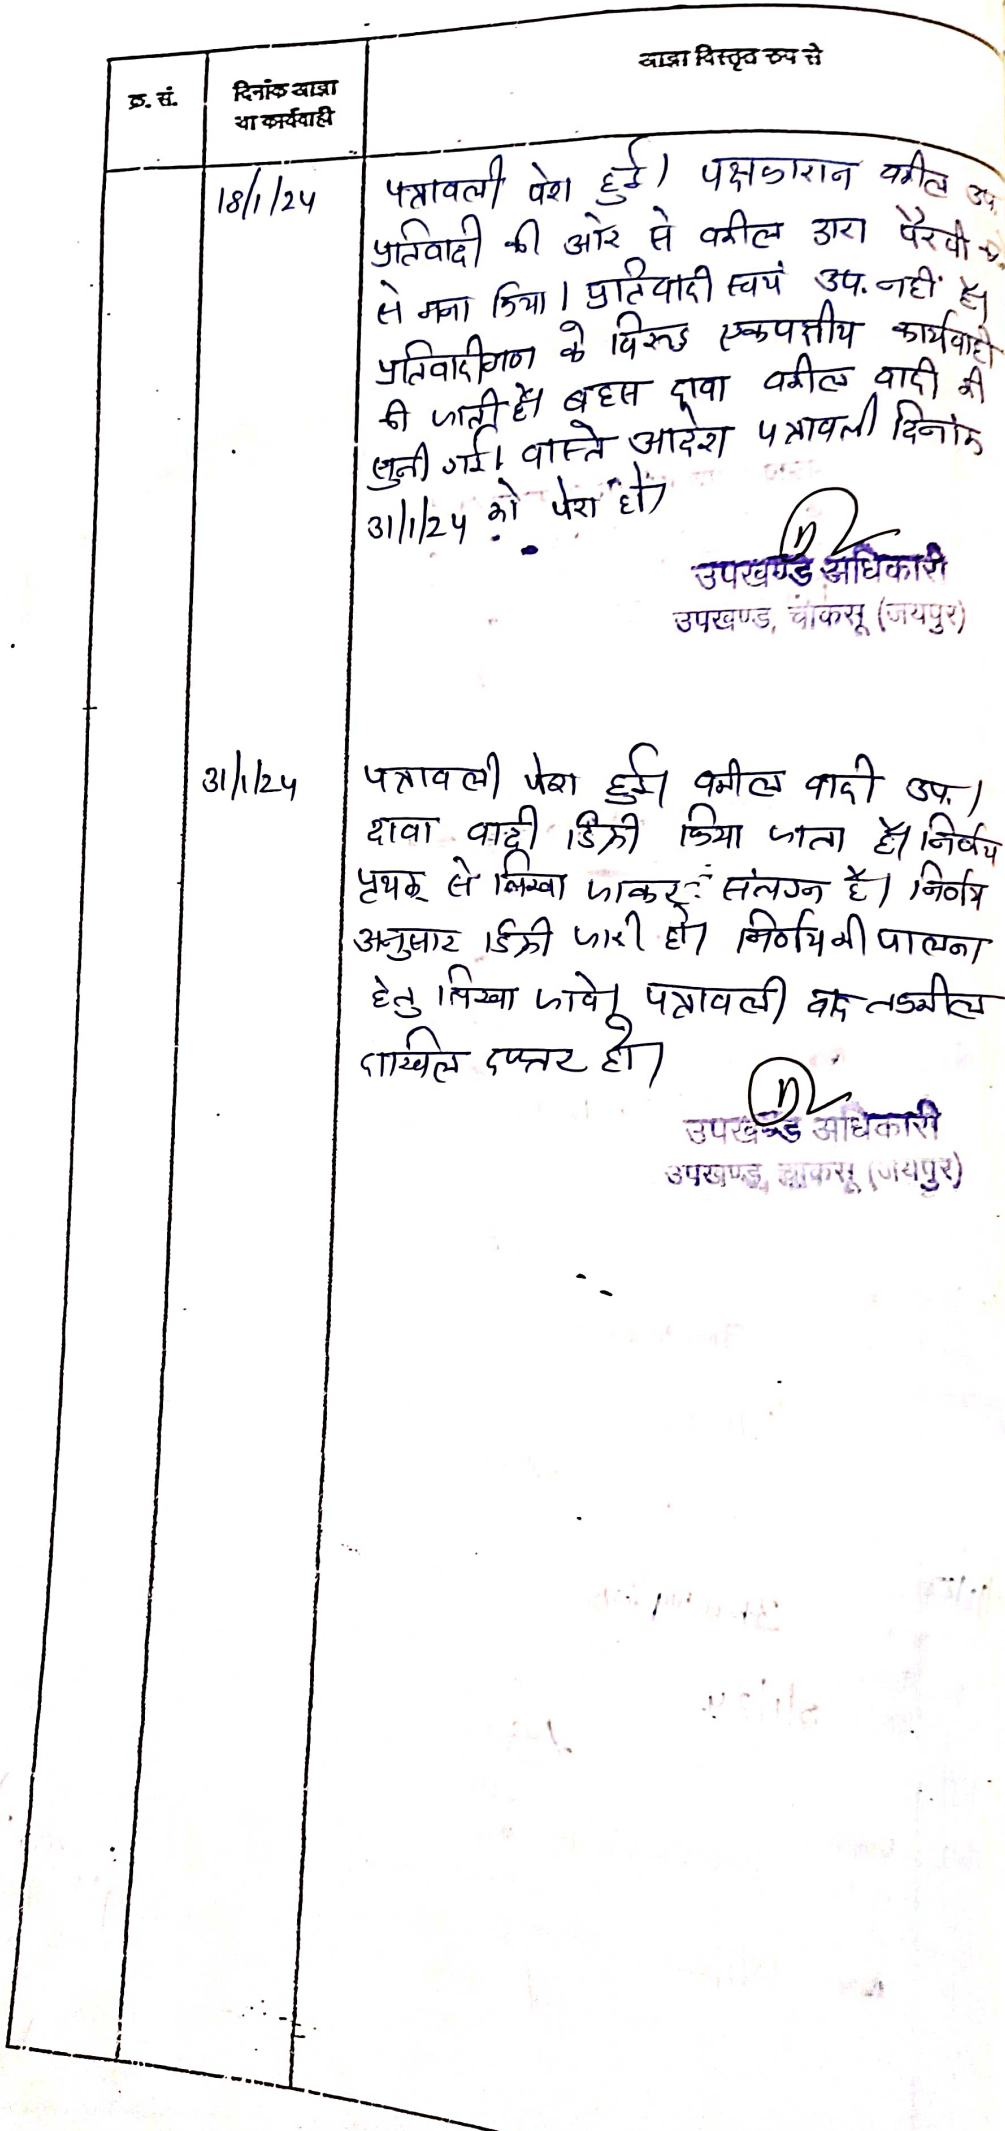 आज्ञा विस्तृत रूप से
क्र. सं.
दिनांक आज्ञा
या कार्यवाही
18/1/24
पत्रावली पेश हुई। पक्षकारान वकील उप.
प्रतिवादी की ओर से वकील द्वारा पैरवी
से मना किया। प्रतिवादी स्वयं उप. नहीं है।
प्रतिवादीगण के विरूद्ध एकपक्षीय कार्यवाही
की जाती है। बहस दावा वकील वादी की
सुनी गई। वास्ते आदेश पत्रावली दिनांक
31/1/24 को पेश हो।
उपखण्ड अधिकारी
उपखण्ड, चाकसू (जयपुर)
31/1/24
पत्रावली पेश हुई। वकील वादी उप.।
दावा वादी डिक्री किया जाता है। निर्णय
पृथक् से लिखा जाकर संलग्न है। निर्णय
अनुसार डिक्री जारी हो। निर्णय की पालना
हेतु लिखा जावे। पत्रावली बाद तकमील
दाखिल दफ्तर हो।
उपखण्ड अधिकारी
उपखण्ड, चाकसू (जयपुर)